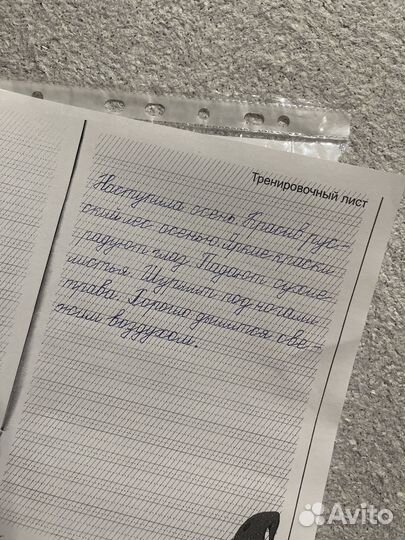 Тренировочный лист
Наступила осень. Красив рус-
ский лес осенью. Яркие краски
радуют глаз. Падают сухие
листья. Шуршит под ногами
трава. Хорошо дышится све-
жим воздухом.
Avito